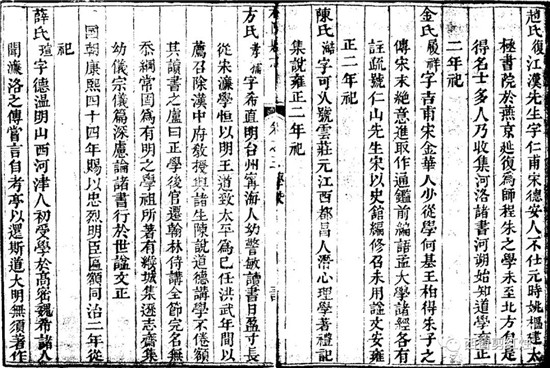 趙氏復江漢先生字仁甫宋德安人不仕元時姚樞建太
極書院於燕京延復為師程朱之學未至北方自是
得名士多人乃收集河洛諸書河朔始知道學雍正
二年祀
金氏履祥字吉甫宋金華人少從學何基王柏得朱子之
傳宋末絶意進取作通鑑前編語孟大學諸經各有
註疏號仁山先生宋以史館編修召未用諡文安雍
正二年祀
陳氏澔字可大號雲莊元江西都昌人潛心理學著禮記
集說雍正二年祀
方氏孝孺字希直明台州寧海人幼警敏讀書日盈寸長
從宋濂學恒以明王道致太平為己任洪武年間以
薦召除漢中府教授與諸生陳說道德講學不倦額
其讀書之廬曰正學後官遷翰林侍講全節完名無
忝綱常固為有明之學祖所著有緱城集遜志齋集
幼儀宗儀篇深慮論諸書行於世諡文正
國朝康熙四十四年賜以忠烈明臣匾額同治二年從
祀
薛氏瑄字德溫明山西河津人初受學於高密魏希諸人
聞濂洛之傳嘗言自考亭以還斯道大明無須著作